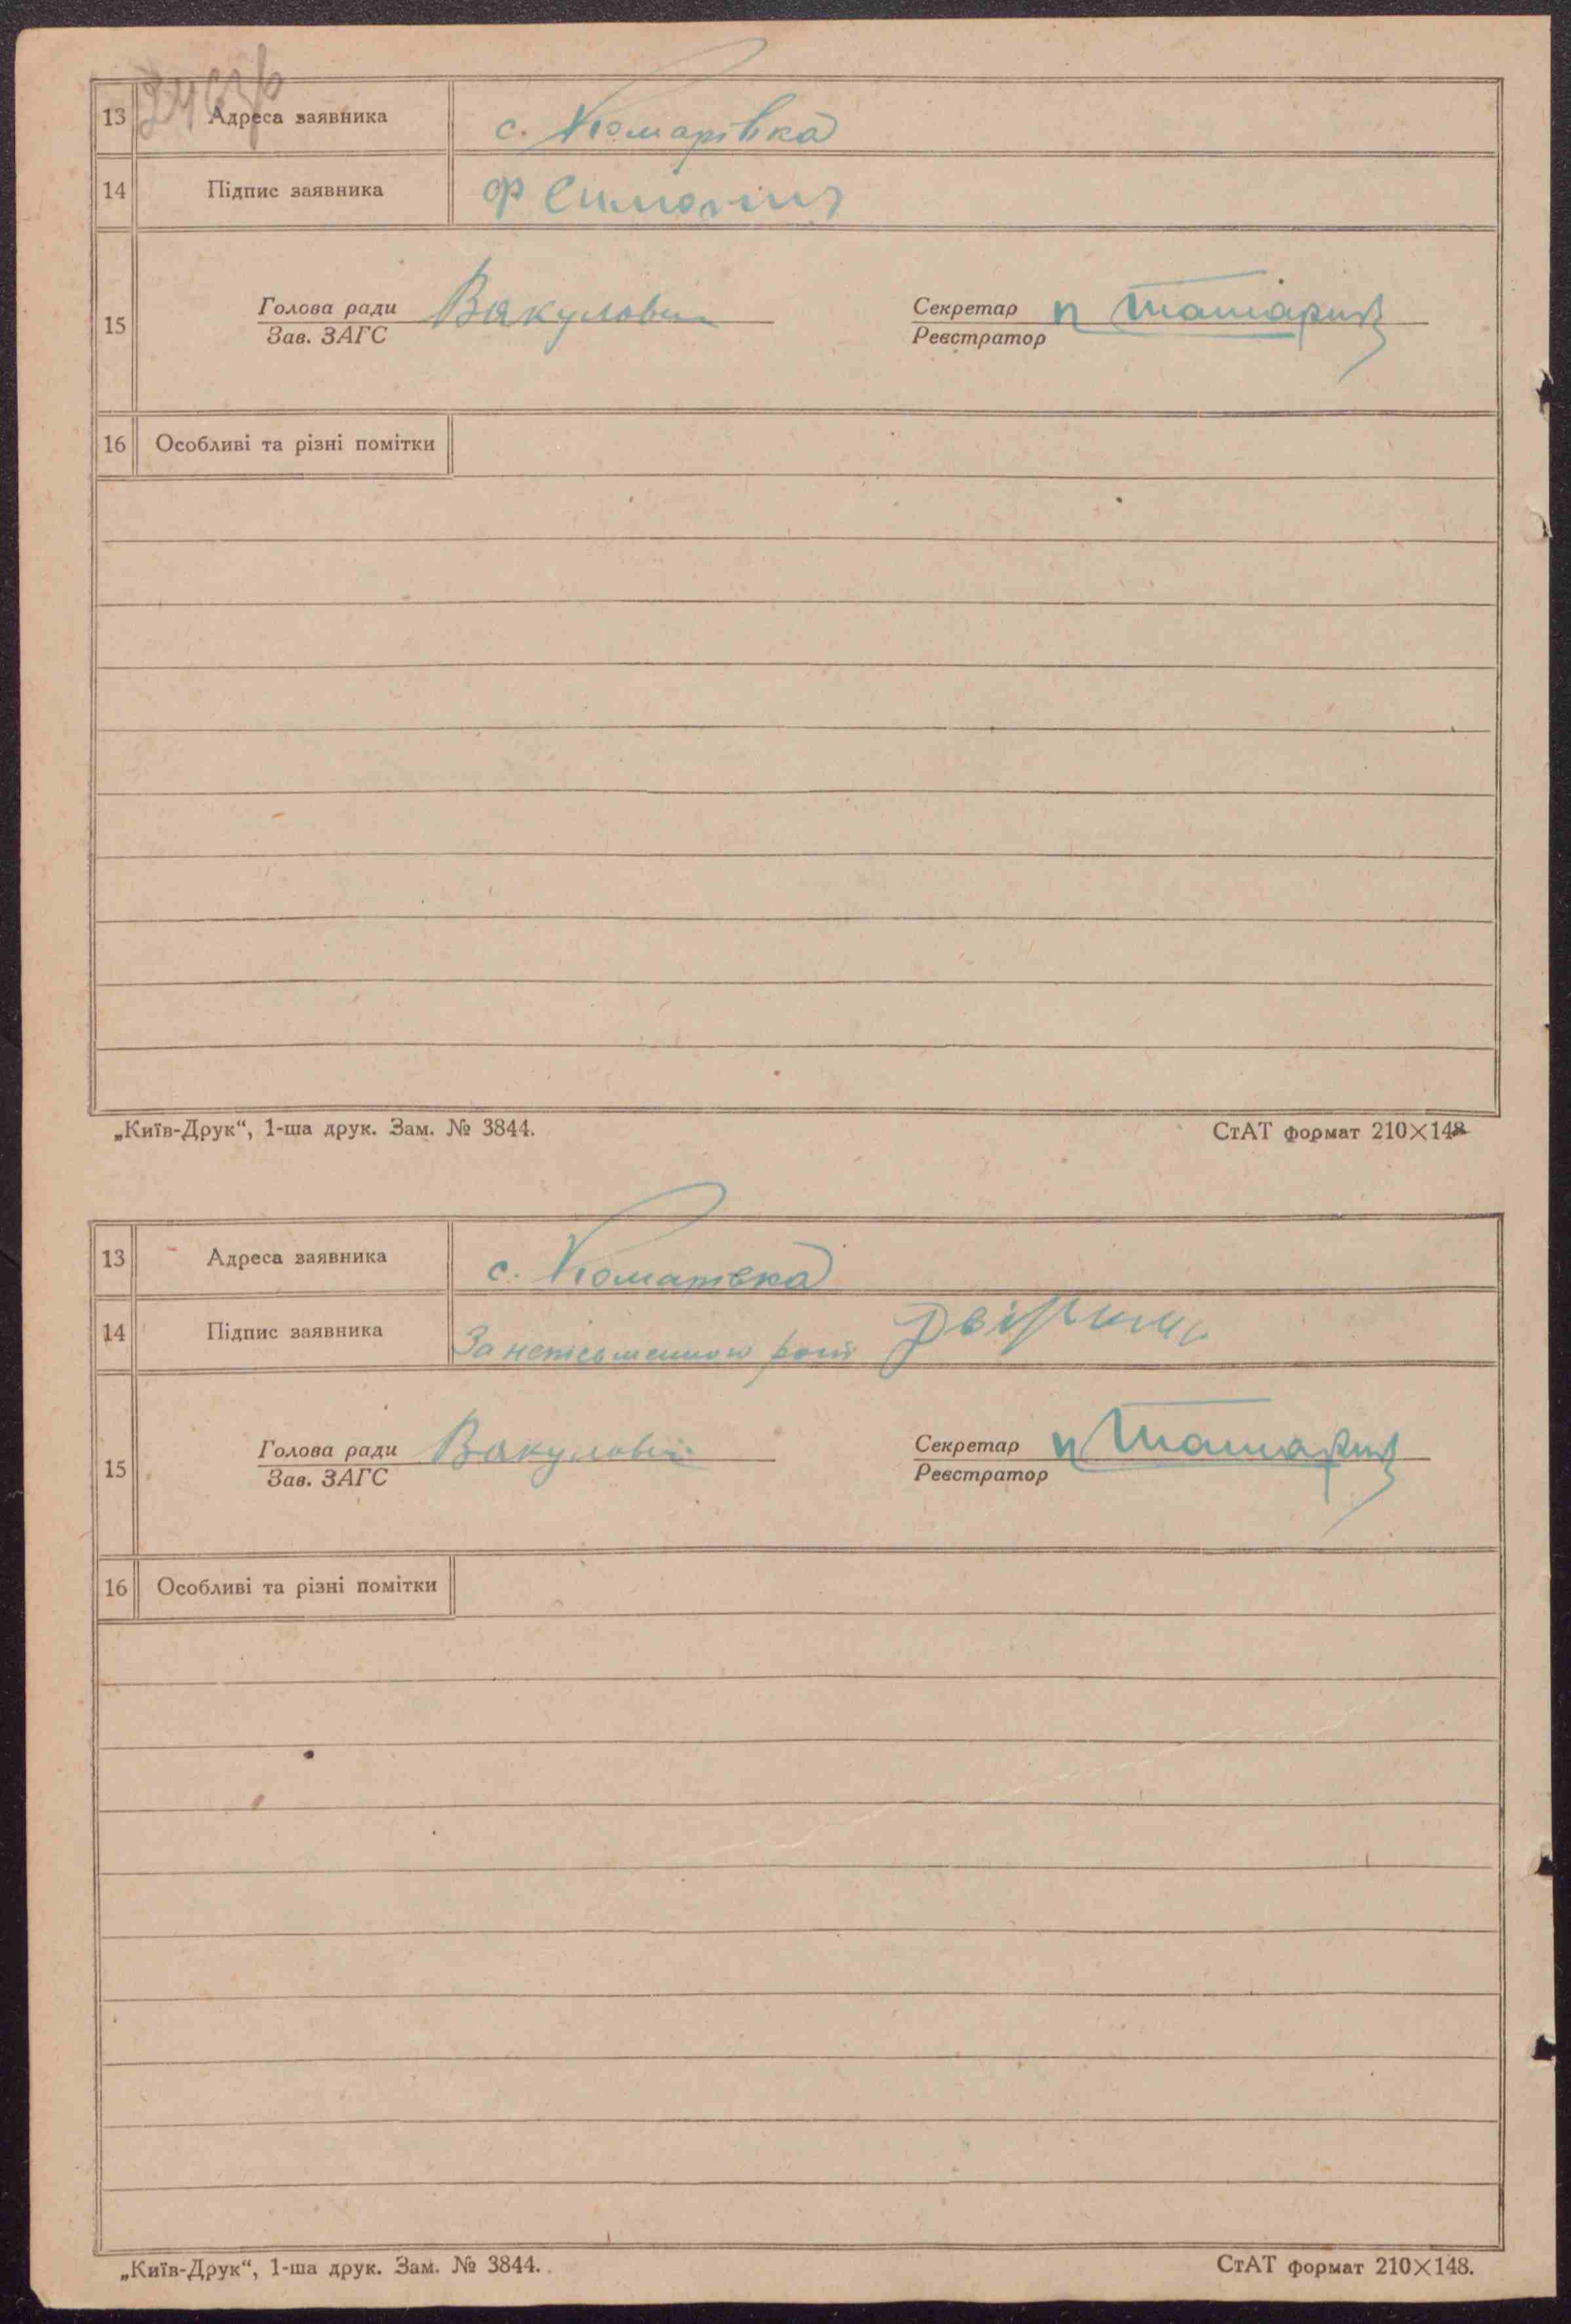 13 Адреса заявника с. Комарівка
14 Підпис заявника Ф
15 Голова ради Вакулович Секретар п Татарин
Зав. ЗАГС Реєстратор
16 Особливі та різні помітки
„Київ-Друк“, 1-ша друк. Зам. № 3844. СтАТ формат 210×148
13 Адреса заявника с. Комарівка
14 Підпис заявника За неписьменного
15 Голова ради Вакулович Секретар п Татарин
Зав. ЗАГС Реєстратор
16 Особливі та різні помітки
„Київ-Друк“, 1-ша друк. Зам. № 3844. СтАТ формат 210×148.